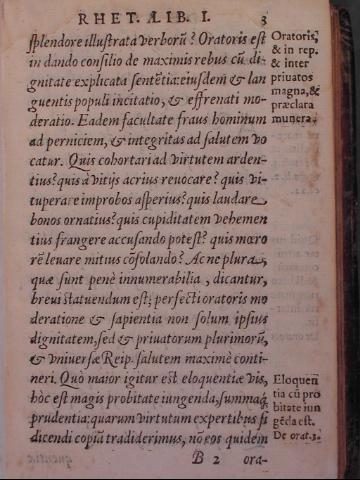 RHET. ÆLIB. I. 3
splendore illustrata verborũ? Oratoris est
in dando consilio de maximis rebus cũ di-
gnitate explicata sentẽtia: eiusdem & lan
guentis populi incitatio, & effrenati mo-
deratio. Eadem facultate fraus hominum
ad perniciem, & integritas ad salutem vo
catur. Quis cohortari ad virtutem arden-
tius? quis à vitijs acrius reuocare? quis vi-
tuperare improbos asperius? quis laudare
bonos ornatius? quis cupiditatem vehemen
tius frangere accusando potest? quis mœro
rẽ leuare mitius cõsolando? Ac ne plura,
quæ sunt penè innumerabilia, dicantur,
breui statuendum est; perfecti oratoris mo
deratione & sapientia non solum ipsius
dignitatem, sed & priuatorum plurimorũ,
& vniuersæ Reip. salutem maximè conti-
neri. Quò maior igitur est eloquentiæ vis,
hòc est magis probitate iungenda, summaq́;
prudentia: quarum virtutum expertibus si
dicendi copiã tradiderimus, nõ eos quidem
B 2 ora-
Oratoris,
& in rep.
& inter
priuatos
magna, &
præclara
munera.
Eloquen
tia cũ pro
bitate iun
gẽda est.
De orat. 3.